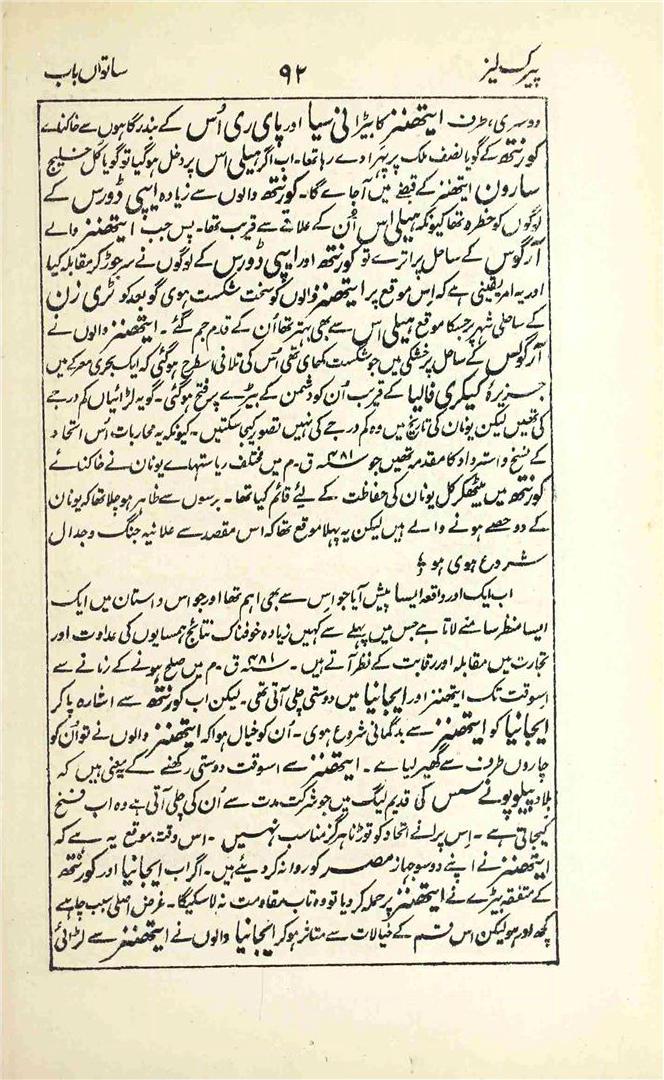 پیرک لیز ۹۲ ساتواں باب
دوسری، طرف ایتھنز کا بیڑا نی سیا اور پای ری اُس کے بندرگاہوں سے خاکنائے
کورنتھ کے گویا نصف ملک پر پہرا دے رہا تھا۔ اب اگر ہیلی اس پر دخل ہوگیا تو گویا کل خلیج
سارون ایتھنز کے قبضے میں آجائے گا۔ کورنتھ والوں سے زیادہ ایپی ڈورس کے
لوگوں کو خطرہ تھا کیونکہ ہیلی اس اُن کے علاقے سے قریب تھا۔ پس جب ایتھنز والے
آرگوس کے ساحل پر اترے تو کورنتھ اور ایپی ڈورس کے لوگوں نے سرجوڑ کر مقابلہ کیا
اور یہ امر یقینی ہے کہ اس موقع پر ایتھنز والوں کو سخت شکست ہوی گو بعد کو ٹری زن
کے ساحلی شہر پر جسکا موقع ہیلی اس سے بھی بہتر تھا اُن کے قدم جم گئے۔ ایتھنز والوں نے
آرگولس کے ساحل پر خشکی میں جو شکست کھای تھی اُس کی تلافی اسطرح ہوگئی کہ ایک بحری معرکے میں
جزیرۂ کیکری فالیا کے قریب اُن کو دشمن کے بیڑے پر فتح ہوگئی۔ گو یہ لڑائیاں کم درجے
کی تھیں لیکن یونان کی تاریخ میں وہ کم درجے کی نہیں تصور کیجا سکتیں۔ کیونکہ یہ محاربات اُس اتحاد
کے نسخ و استرداد کا مقدمہ تھیں جو ۴۸۱؁ ق۔م میں مختلف ریاستہاے یونان نے خاکنائے
کورنتھ میں بیٹھکر کل یونان کی حفاظت کے لئے قائم کیا تھا۔ برسوں سے ظاہر ہو چلا تھا کہ یونان
کے دو حصے ہونے والے ہیں لیکن یہ پہلا موقع تھا کہ اس مقصد سے علانیہ جنگ و جدال
شروع ہوی ہو۔
اب ایک اور واقعہ ایسا پیش آیا جو اس سے بھی اہم تھا اور جو اس داستان میں ایک
ایسا منظر سامنے لاتا ہے جس میں پہلے سے کہیں زیادہ خوفناک نتائج ہمسایوں کی عداوت اور
تجارت میں مقابلہ اور رقابت کے نظر آتے ہیں۔ ۴۸۱؁ ق۔م میں صلح ہونے کے زمانے سے
اسوقت تک ایتھنز اور ایجانیا میں دوستی چلی آتی تھی۔ لیکن اب کورنتھ سے اشارہ پاکر
ایجانیا کو ایتھنز سے بدگمانی شروع ہوی۔ اُن کو خیال ہوا کہ ایتھنز والوں نے تو اُن کو
چاروں طرف سے گھیر لیا ہے۔ ایتھنز سے اسوقت دوستی رکھنے کے یہ معنی ہیں کہ
بلاد پیلوپونے سس کی قدیم لیگ میں جو شرکت مدت سے اُن کی چلی آتی ہے وہ اب فسخ
کیجاتی ہے۔ اس پرانے اتحاد کو توڑنا ہرگز مناسب نہیں۔ اس وقت موقع یہ ہے کہ
ایتھنز نے اپنے دو سو جہاز مصر کو روانہ کردیئے ہیں۔ اگر اب ایجانیا اور کورنتھ
کے متفقہ بیڑے نے ایتھنز پر حملہ کردیا تو وہ تاب مقاومت نہ لا سکیگا۔ غرض اصلی سبب چاہے
کچھ اور ہو لیکن اس قسم کے خیالات سے متاثر ہوکر ایجانیا والوں نے ایتھنز سے لڑائی